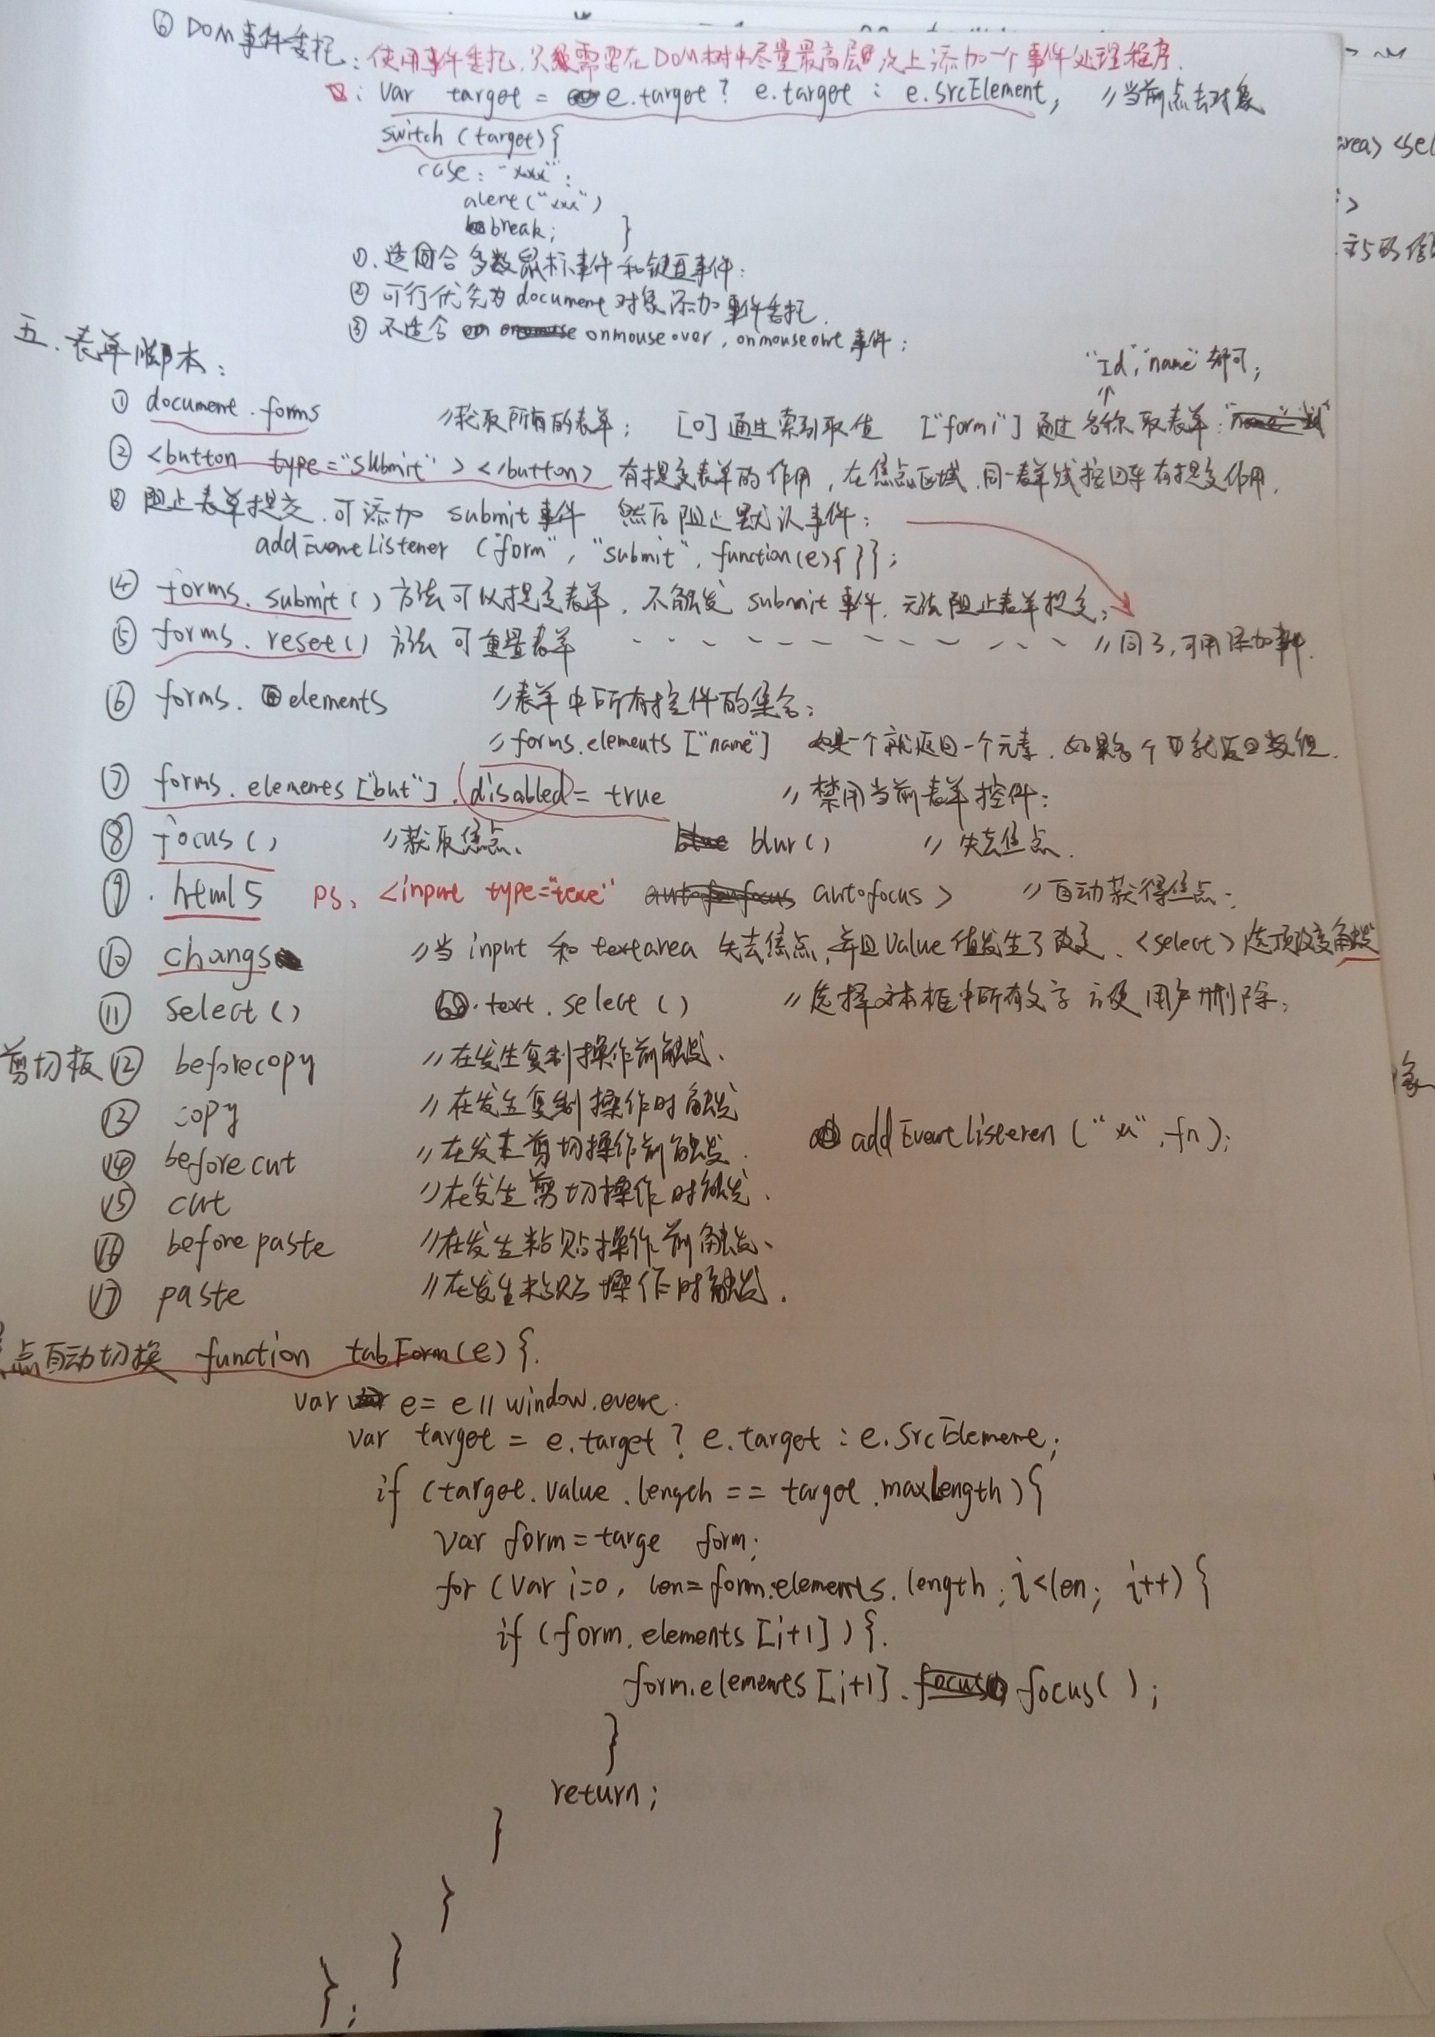 ⑥ DOM事件委托：使用事件委托，只需要在DOM树中尽量最高层次上添加一个事件处理程序.
var target = e.target ? e.target : e.srcElement, //当前点击对象
switch (target){
case: "xxx":
alert("xxx")
break; }
①. 适合多数鼠标事件和键盘事件;
② 可行优先为document对象添加事件委托.
③ 不适合 onmouseover, onmouseout 事件;
五. 表单脚本:
"Id", "name" 都可;
① document.forms //获取所有的表单; [0] 通过索引取值 ["form1"] 通过名称取表单:
② <button type="submit"></button> 有提交表单的作用, 在焦点区域, 同一表单域按回车有提交作用.
③ 阻止表单提交. 可添加 submit事件 然后阻止默认事件;
addEventListener ("form", "submit", function(e){}};
④ forms.submit() 方法可以提交表单, 不触发 submit 事件, 无法阻止表单提交;
⑤ forms.reset() 方法 可重置表单 - - - - - - - - - - //同3, 可用添加事件.
⑥ forms. elements //表单中所有控件的集合;
// forms.elements ["name"] 如果一个就返回一个元素, 如果多个就返回数组.
⑦ forms.elements ["but"].disabled = true //禁用当前表单控件;
⑧ focus() //获取焦点、 blur() //失去焦点.
⑨. html5 ps、<input type="text" autofocus> //自动获得焦点;
⑩ changs //当 input 和 textarea 失去焦点, 并且 value 值发生了改变、<select> 选项改变触发
⑪ select() text.select() //选择文本框中所有文字 方便用户删除;
剪切板 ⑫ beforecopy //在发生复制操作前触发、
⑬ copy //在发生复制操作时触发
addEventListeren ("xx", fn);
⑭ beforecut //在发生剪切操作前触发.
⑮ cut //在发生剪切操作时触发、
⑯ beforepaste //在发生粘贴操作前触发、
⑰ paste //在发生粘贴操作时触发.
点自动切换 function tabForm(e){
var e = e || window.event.
var target = e.target ? e.target : e.srcElement;
if (target.value.length == target.maxLength){
var form = targe form;
for (var i=0, len=form.elements.length; i<len; i++){
if (form.elements[i+1]){
form.elements[i+1].focus();
}
return;
}
}
}
};